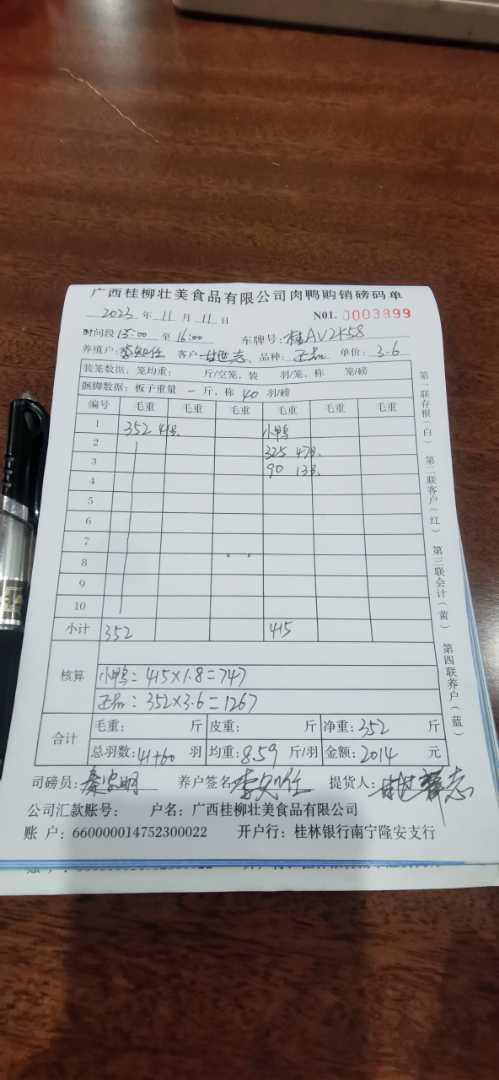 广西桂柳壮美食品有限公司肉鸭购销磅码单
2023 年 11 月 11 日 N01. 0003899
时间段 15:00 至 16:00 车牌号: 桂AV2K58
养殖户: 客户 品种: 正品 单价: 3.6
装笼数据: 笼均重: 斤/空笼,装 羽/笼,称 笼/磅
捆脚数据: 板子重量 一 斤,称 40 羽/磅
编号 毛重 毛重 毛重 毛重 毛重 毛重
1 352 41只 小鸭
2 325 47只
3 90 13只
4
5
6
7
8
9
10
小计 352 415
核算 小鸭:415×1.8=747
正品:352×3.6=1267
合计 毛重: 斤 皮重: 斤 净重: 352 斤
总羽数: 41+60 羽 均重: 8.59 斤/羽 金额: 2014 元
司磅员: 养户签名 提货人:
公司汇款账号: 户名:广西桂柳壮美食品有限公司
账 户:660000014752300022 开户行:桂林银行南宁隆安支行
第一联存根(白) 第二联客户(红) 第三联会计(黄) 第四联养户(蓝)